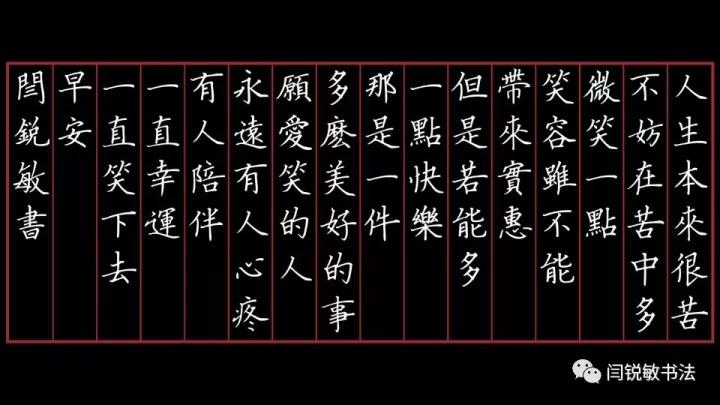 人生本來很苦
不妨在苦中多
微笑一點
笑容雖不能
帶來實惠
但是若能多
一點快樂
那是一件
多麼美好的事
願愛笑的人
永遠有人心疼
有人陪伴
一直幸運
一直笑下去
早安
閆銳敏書
闫锐敏书法